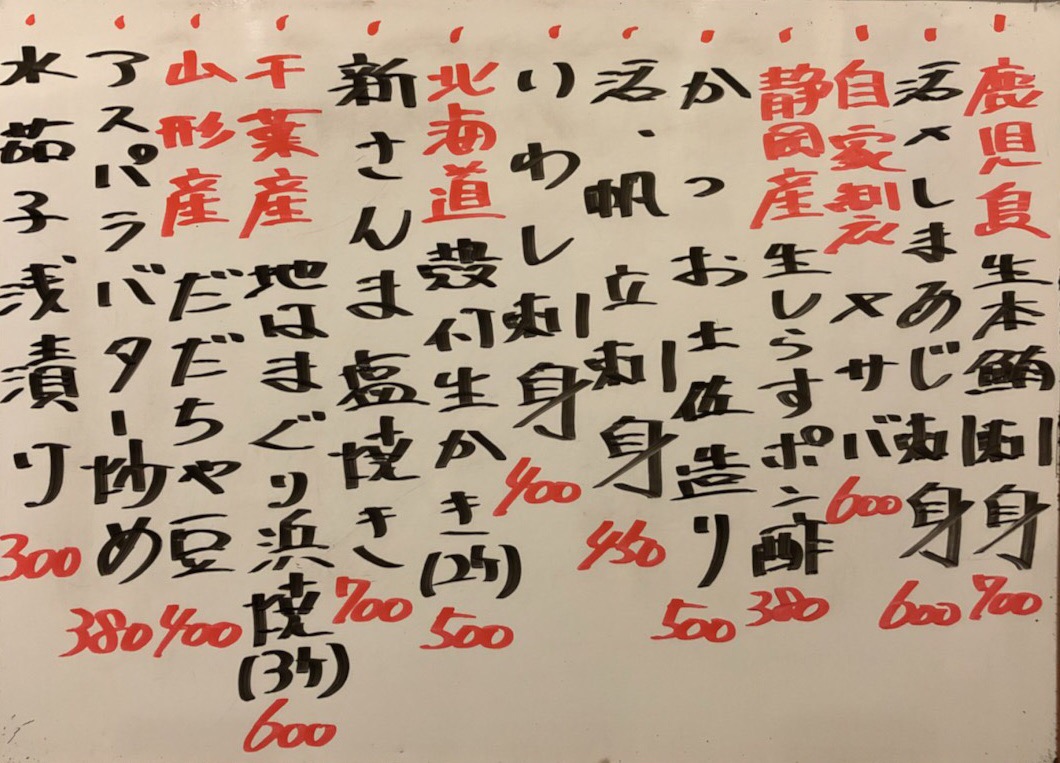 鹿児島 生本鮪刺身 700
活〆しまあじ刺身 600
自家製〆サバ 600
静岡産 生しらすポン酢 380
かつお土佐造り 500
活、帆立刺身 450
いわし刺身 400
北海道 殻付生かき(2ヶ) 500
新さんま塩焼き 700
千葉産 地はまぐり浜焼(3ヶ) 600
山形産 だだちゃ豆 400
アスパラバター炒め 380
水茄子浅漬り 300